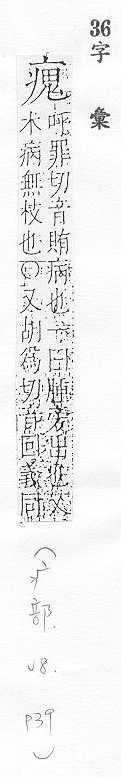 36字彙
瘣
呼罪切音賄病也一曰腫旁出也又
木病無枝也○又胡為切音回義同
(疒部. v8. P39)